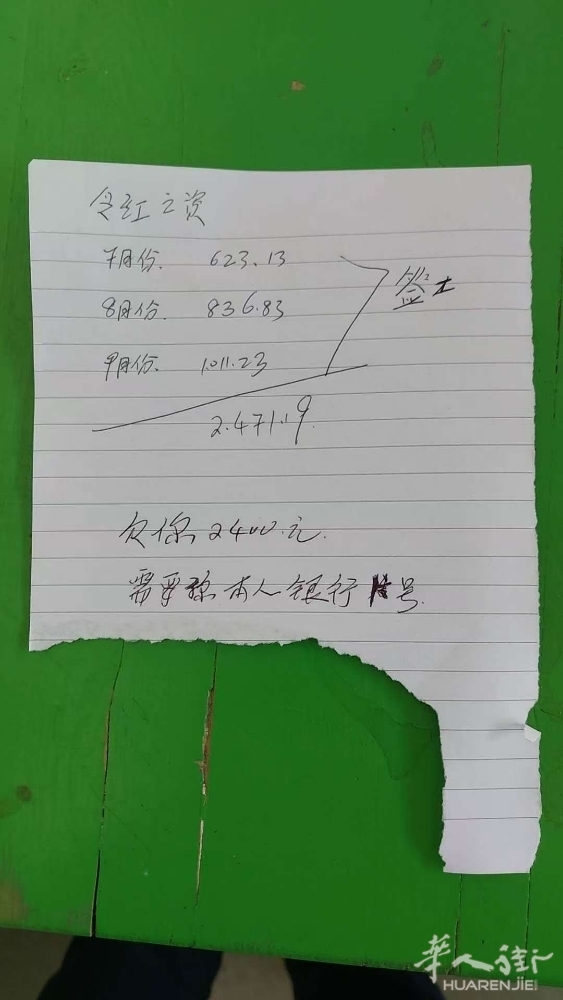 令红工资
7月份. 623.13
8月份. 836.83
9月份. 1.011.23
签士
2.471.19.
欠你 2400.元.
需要你本人银行卡号.
華人街
HUARENJIE